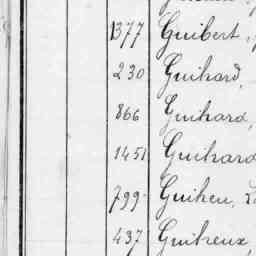 1377 Guibert,
230 Guihard,
866 Guihard,
1451 Guihard
799 Guiheu,
437 Guiheux,